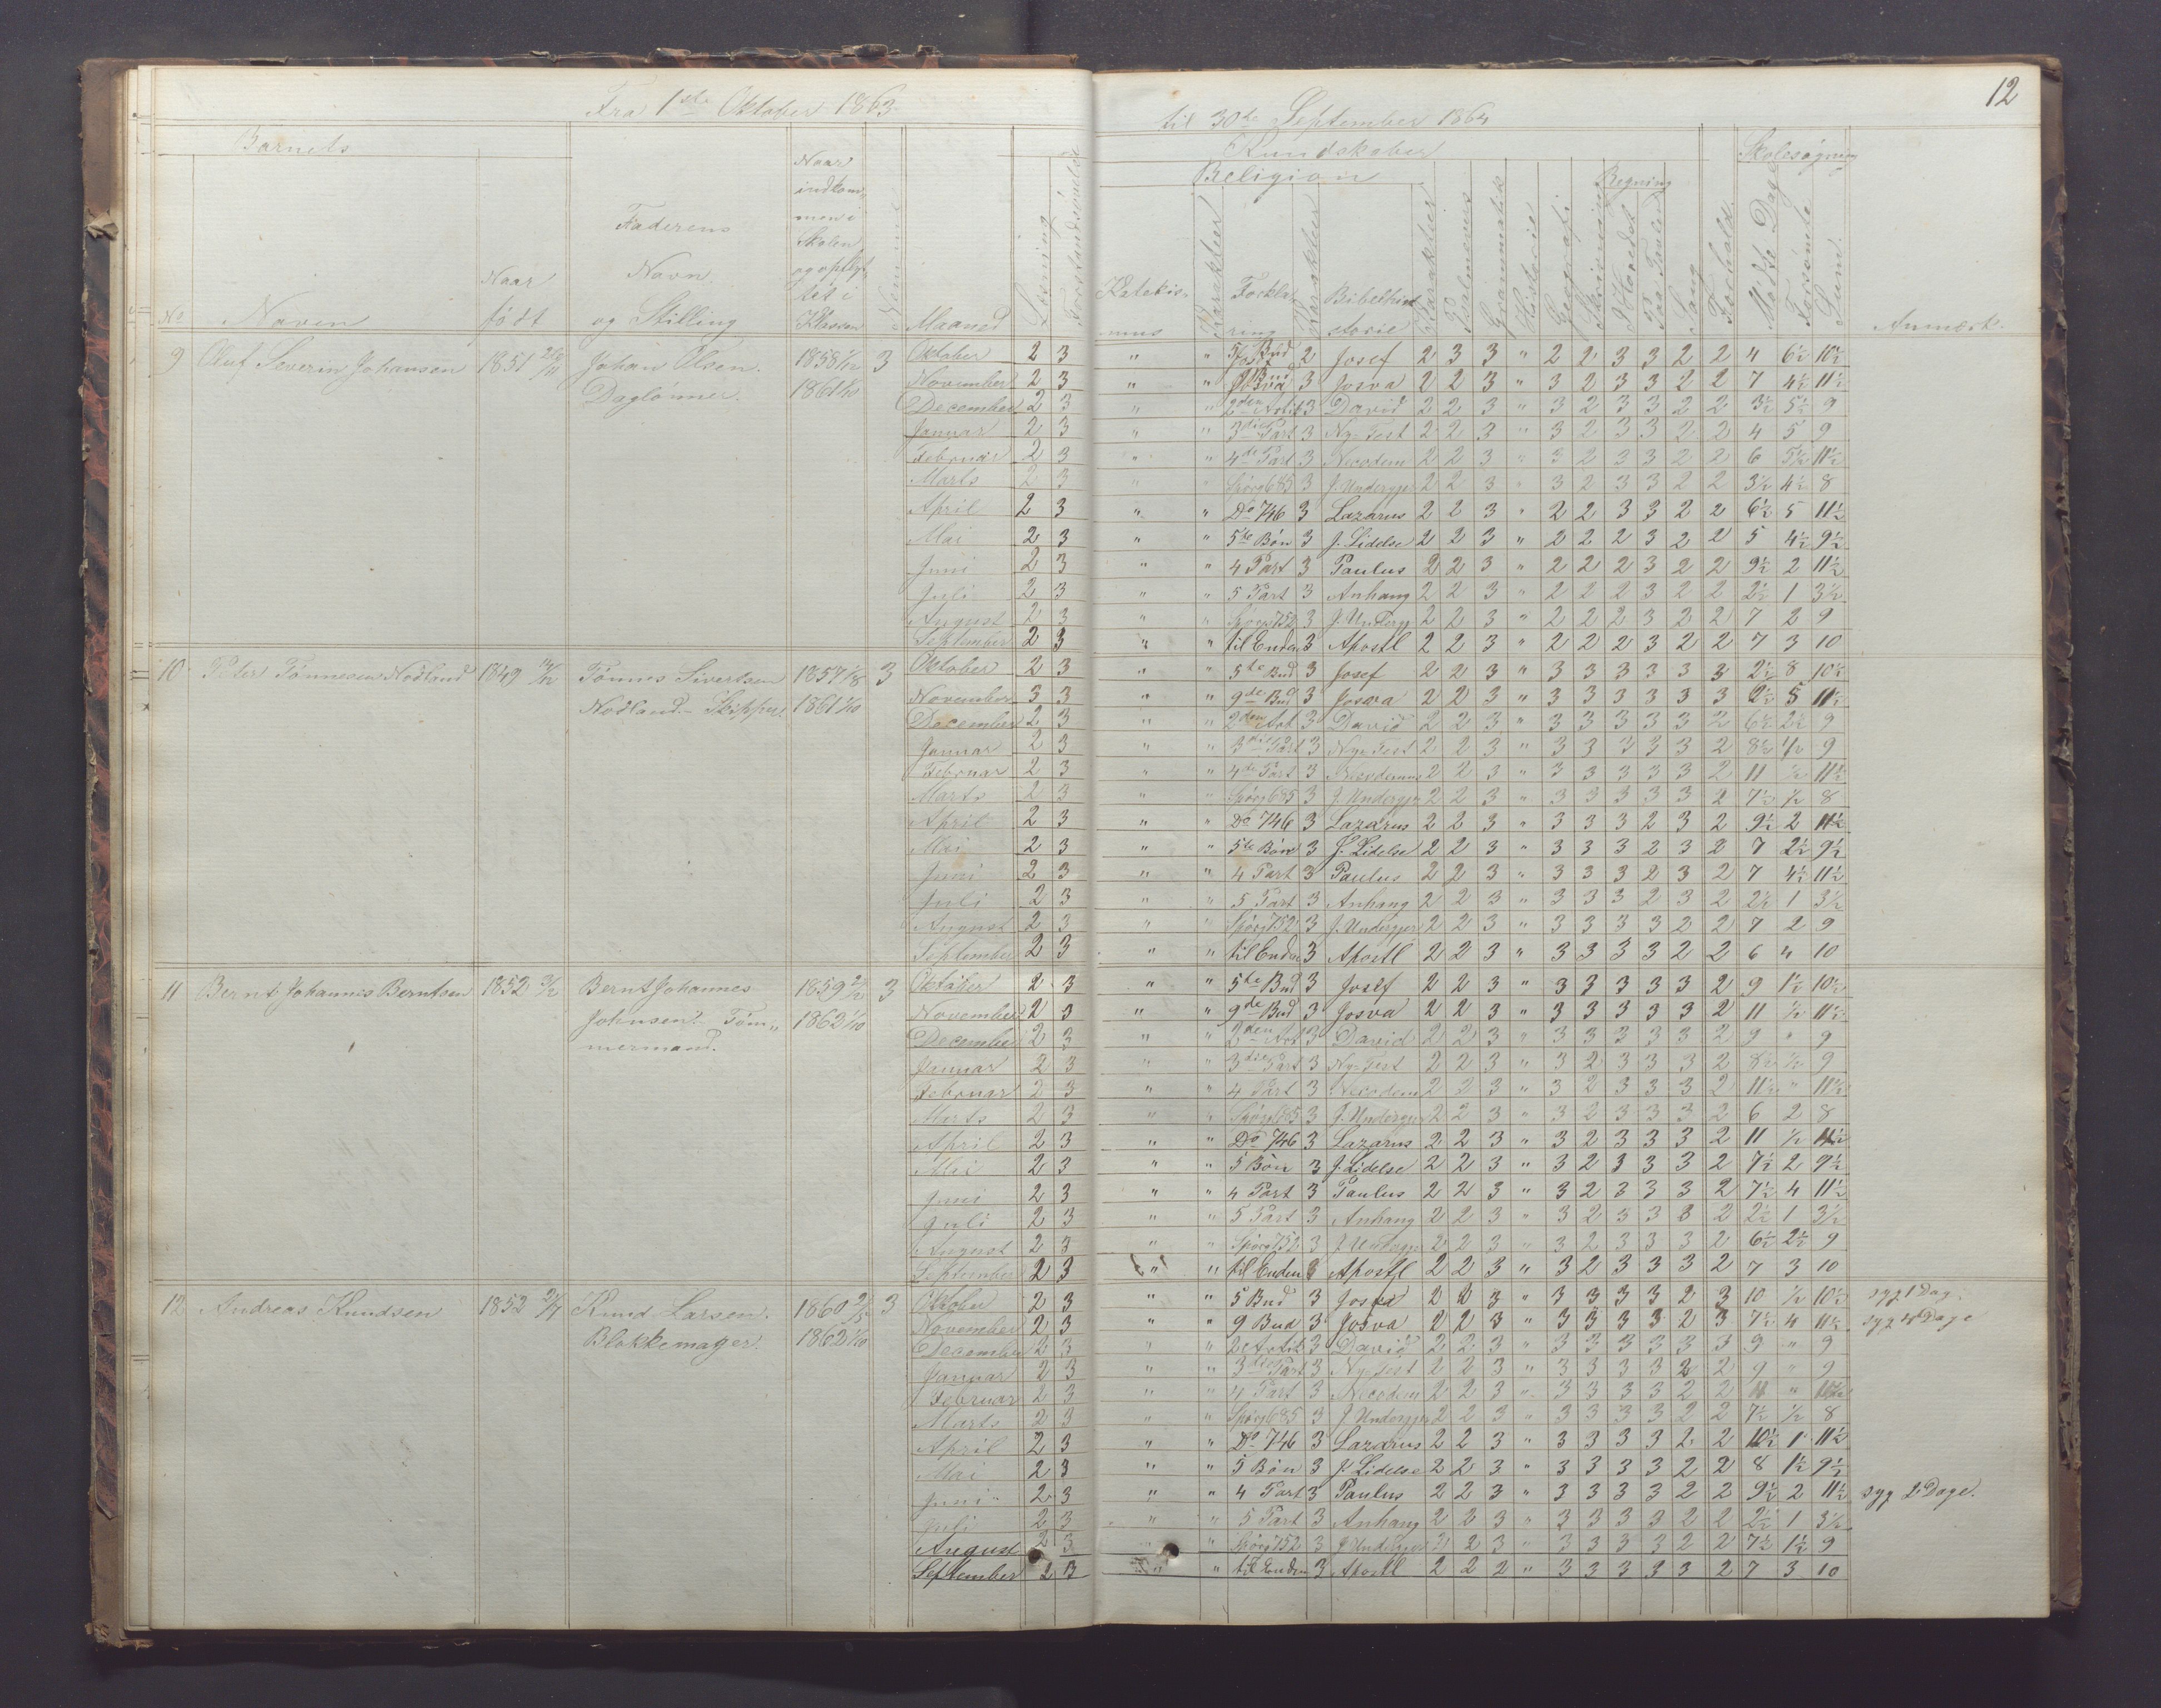 12
Fra 1ste Oktober 1863
til 30te September 1864
Barnets
No Navn
Naar født
Faderens Navn og Stilling
Naar indkommen i Skolen og opflyttet i Klassen
Nummer
Maaned
Læsning
Forstandsøvelse
Kundskaber
Religion
Katekismus
Karakteer
Forklaring
Karakteer
Bibelhistorie
Karakteer
Psalmevers
Grammatik
Historie
Geografi
Skrivning
Regning
I Hovedet
Paa Tavlen
Sang
Forhold
Skolesøgning
Mødte Dage
Forsømte
Sum
Anmærk.
9 Oluf Severin Johansen 1851 Johan Olsen. 1858 3
Daglønner. 1861 1/10
Oktober 2 3 " " 5 Bud 2 Josef 2 3 3 " 2 2 3 3 2 2 4 6½ 10½
November 2 3 " " 9 Bud 3 Josva 2 2 3 " 3 2 3 3 2 2 7 4½ 11½
December 2 3 " " 2den Artik 3 David 2 2 3 " 3 2 3 3 2 2 3½ 5½ 9
Januar 2 3 " " 3die Part 3 Ny-Test 2 2 3 " 3 2 3 3 2 2 4 5 9
Februar 2 3 " " 4de Part 3 Necodem 2 2 3 " 3 2 3 3 2 2 6 5½ 11½
Marts 2 3 " " Spörg 685 3 J. Undergjer 2 2 3 " 3 2 3 3 2 2 3½ 4½ 8
April 2 3 " " Do 746 3 Lazarus 2 2 3 " 2 2 3 3 2 2 6½ 5 11½
Mai 2 3 " " 5te Bön 3 J. Lidelse 2 2 3 " 2 2 2 3 2 2 5 4½ 9½
Juni 2 3 " " 4 Part 3 Paulus 2 2 3 " 2 2 2 3 2 2 9½ 2 11½
Juli 2 3 " " 5 Part 3 Anhang 2 2 3 " 2 2 2 3 2 2 2½ 1 3½
August 2 3 " " Spörg 752 3 J. Underg 2 2 3 " 2 2 2 3 2 2 7 2 9
September 2 3 " " til Enden 3 Apostl 2 2 3 " 2 2 2 3 2 2 7 3 10
10 Peter Tønnesen Nodland 1849 Tønnes Sivertsen 1857 1/8 3
Nodland. - Skipper. 1861 1/10
Oktober 2 3 " " 5te Bud 3 Josef 2 2 3 " 3 3 3 3 3 3 2½ 8 10½
November 3 3 " " 9de Bud 3 Josava 2 2 3 " 3 3 3 3 3 3 6½ 5 11½
December 2 3 " " 2den Art 3 David 2 2 3 " 3 3 3 3 3 2 6½ 2½ 9
Januar 2 3 " " 3die Part 3 Ny-Test 2 2 3 " 3 3 3 3 3 2 8½ ½ 9
Februar 2 3 " " 4de Part 3 Necodemus 2 2 3 " 3 3 3 3 3 2 11 ½ 11½
Marts 2 3 " " Spörg 685 3 J. Undergjer 2 2 3 " 3 3 3 3 3 2 7½ ½ 8
April 2 3 " " Do 746 3 Lazarus 2 2 3 " 3 3 3 2 3 2 9½ 2 11½
Mai 2 3 " " 5te Bön 3 J. Lidelse 2 2 3 " 3 3 3 2 3 2 7 2½ 9½
Juni 2 3 " " 4 Part 3 Paulus 2 2 3 " 3 3 3 2 3 2 7 4½ 11½
Juli 2 3 " " 5 Part 3 Anhang 2 2 3 " 3 3 3 2 3 2 2½ 1 3½
August 2 3 " " Spörg 752 3 J. Undergjer 2 2 3 " 3 3 3 3 2 2 7 2 9
September 2 3 " " til Enden 3 Apostl 2 2 3 " 3 3 3 3 2 2 6 4 10
11 Bernt Johannes Berntsen 1852 Bernt Johannes 1859 3
Johnsen. - Töm„ 1862 1/10
mermand.
Oktober 2 3 " " 5te Bud 3 Josef 2 2 3 " 3 3 3 3 3 2 9 1½ 10½
November 2 3 " " 9de Bud 3 Josva 2 2 3 " 3 3 3 3 3 2 11 ½ 11½
December 2 3 " " 2den Art 3 David 2 2 3 " 3 3 3 3 3 2 9 " 9
Januar 2 3 " " 3die Part 3 Ny-Test 2 2 3 " 3 2 3 3 3 2 8½ ½ 9
Februar 2 3 " " 4 Part 3 Necodem 2 2 3 " 3 2 3 3 3 2 11½ " 11½
Marts 2 3 " " Spörg 685 3 J. Undergjer 2 2 3 " 3 2 3 3 3 2 6 2 8
April 2 3 " " Do 746 3 Lazarus 2 2 3 " 3 2 3 3 3 2 11 ½ 11½
Mai 2 3 " " 5 Bön 3 J. Lidelse 2 2 3 " 3 2 3 3 3 2 7½ 2 9½
Juni 2 3 " " 4 Part 3 Paulus 2 2 3 " 3 2 3 3 3 2 7½ 4 11½
Juli 2 3 " " 5 Part 3 Anhang 2 2 3 " 3 2 3 3 3 2 2½ 1 3½
August 2 3 " " Spörg 752 3 J. Undergje 2 2 3 " 3 2 3 3 3 2 6½ 2½ 9
September 2 3 " " til Enden 3 Apostl 2 2 3 " 3 2 3 3 3 2 7 3 10
12 Andreas Knudsen 1852 Knud Larsen. 1860 3
Blokkemager. 1862 1/10
Oktober 2 3 " " 5 Bud 3 Josva 2 2 3 " 3 3 3 3 2 3 10 ½ 10½ syg 1 Dag.
November 2 3 " " 9 Bud 3 Josva 2 2 3 " 3 3 3 3 2 3 7½ 4 11½ syg 4 Dage
December 2 3 " " 2 Artik 3 David 2 2 3 " 3 3 3 3 3 3 9 " 9
Januar 2 3 " " 3die Part 3 Ny-Test 2 2 3 " 3 3 3 3 2 2 9 " 9
Februar 2 3 " " 4 Part 3 Necodem 2 2 3 " 3 3 3 3 2 2 11 "
Marts 2 3 " " Spörg 685 3 J. Undergjer 2 2 3 " 3 3 3 3 2 2 7½ ½ 8
April 2 3 " " Do 746 3 Lazarus 2 2 3 " 3 3 3 3 2 2 10½ 1 11½
Mai 2 3 " " 5 Bön 3 J. Lidelse 2 2 3 " 3 3 3 3 2 2 8 1½ 9½
Juni 2 3 " " 4 Part 3 Paulus 2 2 3 " 3 3 3 3 2 2 9½ 2 11½ syg 2 Dage.
Juli 2 3 " " 5 Part 3 Anhang 2 2 3 " 3 3 3 3 2 2 2½ 1 3½
August 2 3 " " Spörg 752 3 J. Undergjer 2 2 3 " 3 3 3 3 2 2 7½ 1½ 9
September 2 3 " " til Enden 3 Apostl 2 2 2 " 3 3 3 3 3 2 7 3 10